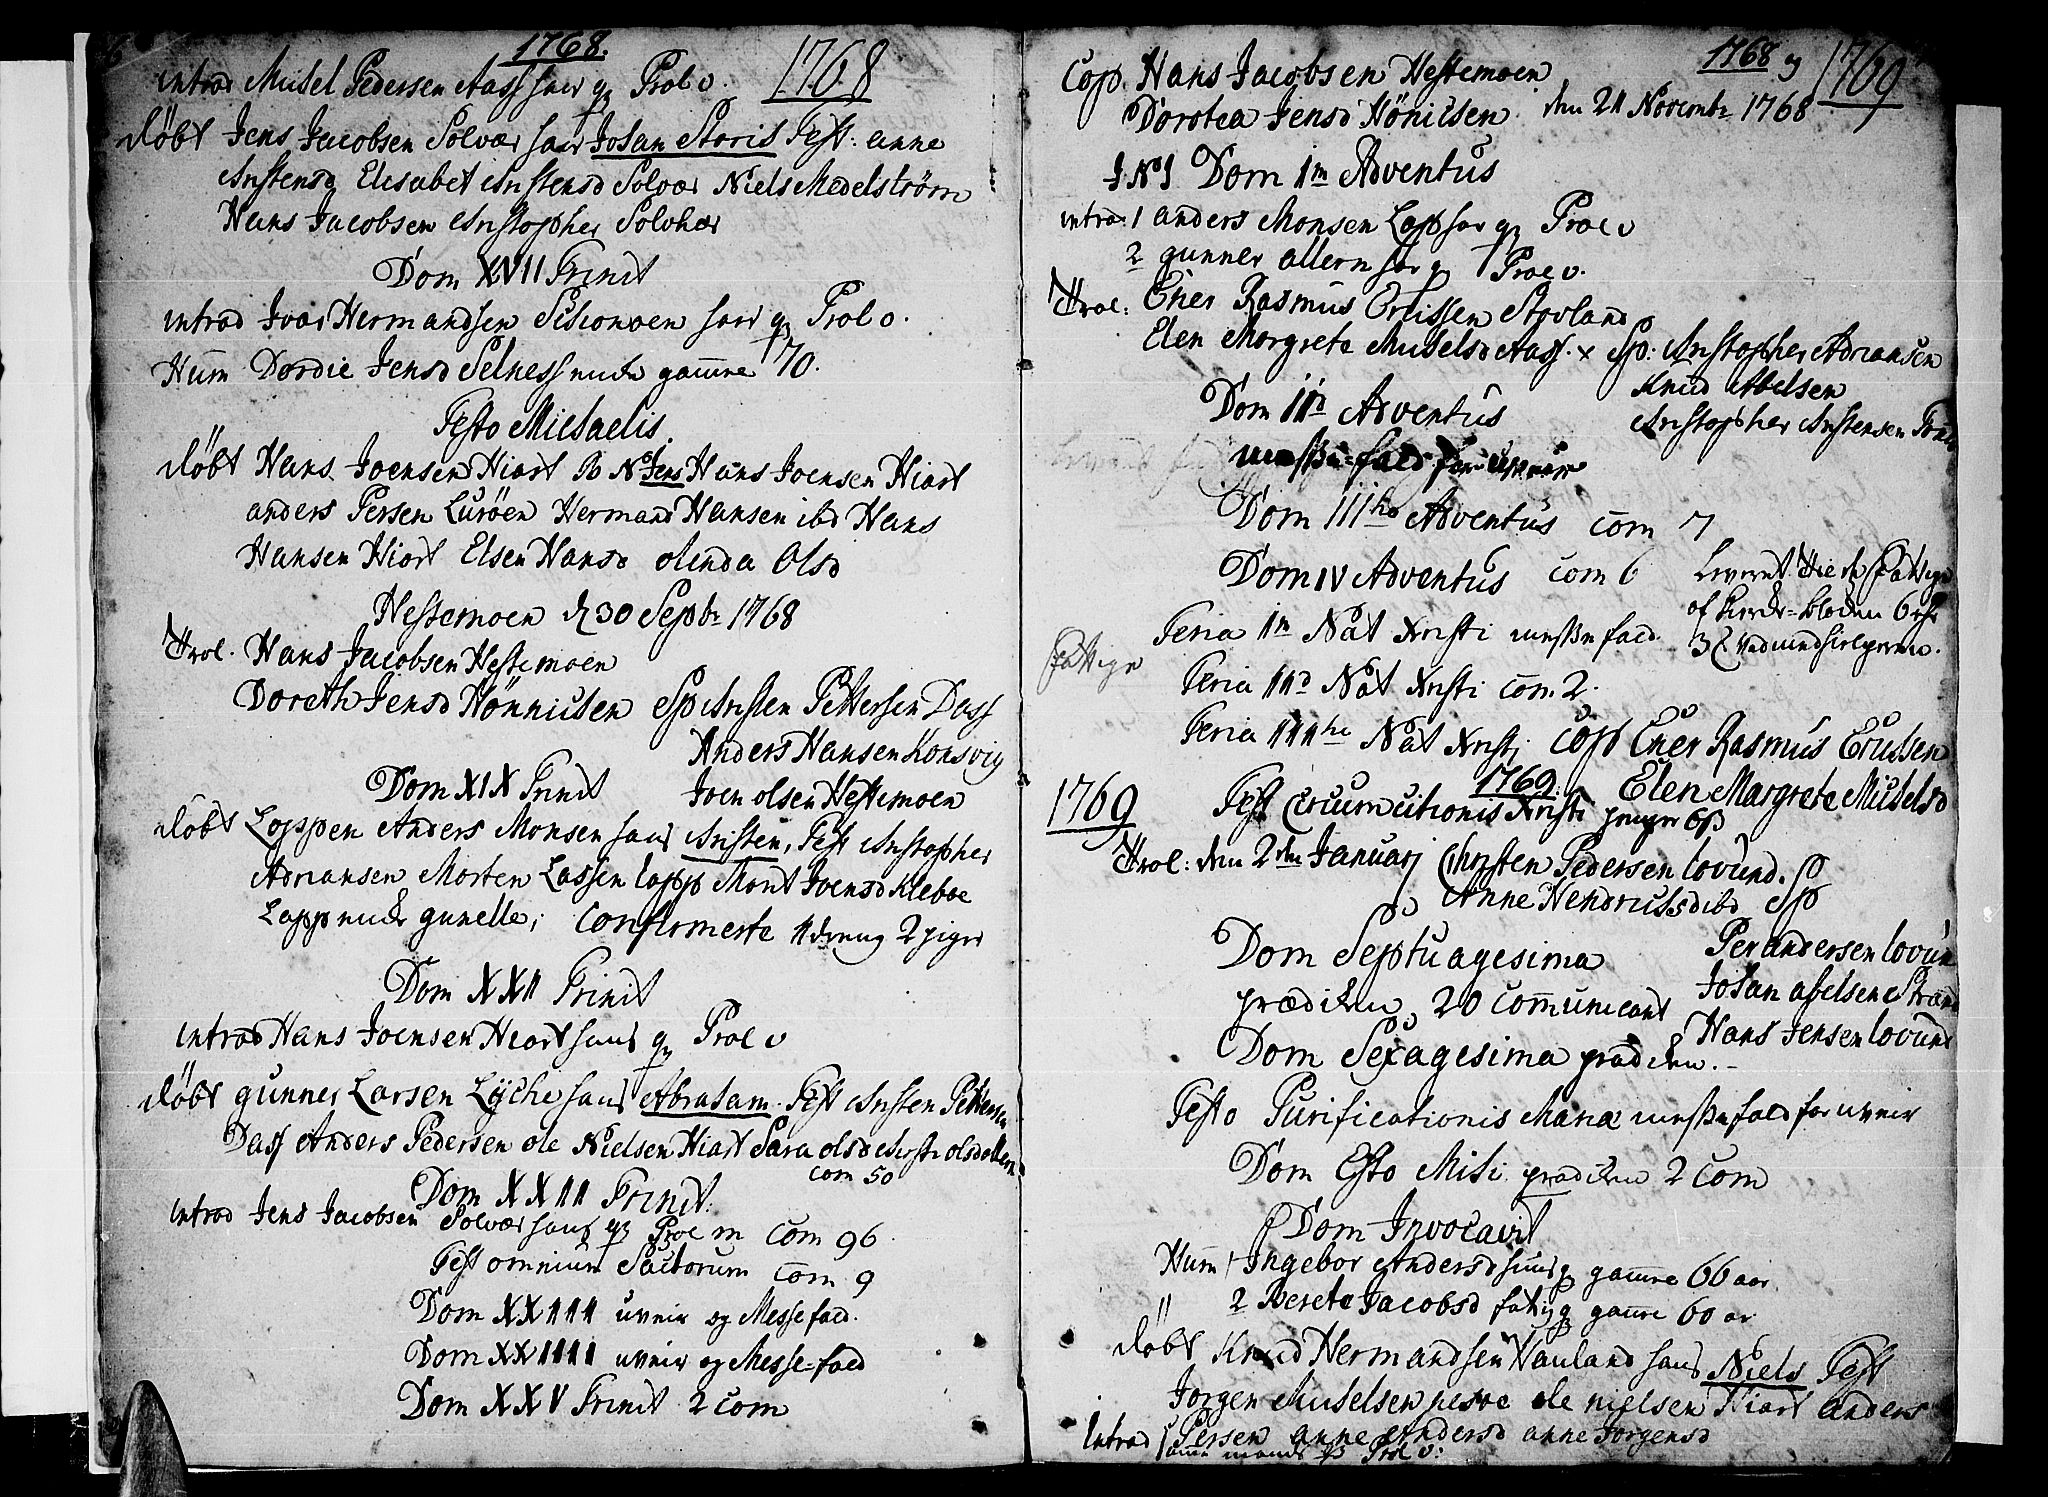 1768.
1768
introd Mickel Pedersen Aass hans q Prol v.
døbt Jens Jacobsen Solvær hans Johan Storis Test: anne
Christensd Elisabet Christensd Solvær Niels Medelström
Hans Jacobsen Christopher Solvhær
Dom XVII Trinit
introd Ivar Hermandsen hans q Prol v.
Hum Dordie Jensd Selness gamme 70.
Festo Michaelis.
døbt Hans Joensen Hiart B N Jens Hans Joensen Hiart
anders Persen Lurøen Hermand Hansen ibd Hans
Hansen Hiort Elsen Hansd olinda Olsd
Hestemoen d 30 Septr 1768
Trol. Hans Jacobsen Hestemoen
Doreth Jensd Hönnicksen Sp Christen Pettersen Dass
Anders Hansen Konsvig
Dom XIX Trinit
Joen olsen Hestemoen
døbt Loppen Anders Monsen hans Christen, Test Christopher
Adriansen Morten Lassen lapp Marit Joensd Klebbe
Lapp gunelle; Confirmerte 11 dreng 2 piger
Dom XXII Trinit
introd Hans Joensen Hiort hans q Prol v
døbt gunner Larsen Lÿche hans Abraham. Test Christen Pettersen
Dass Anders Pedersen ole Nielsen Hiart Sara olsd Kirsti olsd ollern
com 50
Dom XXIII Trinit:
introd Jens Jacobsen Solvær hans q Prol m com 96
Fest omnium Sanctorum com 9
Dom XXIIII uveir og Messefald.
Dom XXIIII uveir og Messe-fald
Dom XXV Trinit 2 com
1768 og 1769
Cop. Hans Jacobsen Hestemoen
Dorotea Jensd Hönicksen. den 21 Novembr 1768
J N J Dom 1m Adventus
introd: 1 anders Monsen Lap hans q Prol v
2 gunner ollern hans q Prol v.
Trol: Ener Rasmus Ericssen Stovland
Elen Morgrete Mickelsd Aass. x Sp: Christopher Adriansen
Knud Abelsen
Dom IId Adventus
Christopher Christensen
messe-fald for uveir
Dom IIItio Adventus com 7
Dom IV Adventus com 6
6
Feria 1m Nat Xristi messefald
fattige
Feria IId Nat Xristi com. 2.
Feria IIItio Nat Xristi Cop Ener Rasmus Ericssen
1769. Elen Margrete Mickelsd
1769
Fest Circumcitionis Xristi
Trol: den 2den Januarj Christen Pedersen lovund.
Anne Hendricksd ibd Sp
Dom Septuagesima
Per andersen lovun
Johan abelsen Strand
prædiken 20 Communicant
Hans Jensen lovund
Dom Sexagesima prædiken.
Festo Purificationis Mariæ messefald for uveir
Dom Esto Mihi prædiken 2 com
Dom Invocavit
Hum 1 Ingebor Andersd hans gamme 66 aar
2 Berete Jacobsd fattig gamme 60 ar
døbt Knud Hermandsen hans Niels Test
Jorgen Mickelsen ole nielsen Hiart anders
Persen anne Andersd anne Jorgensd
Introd Prol v: